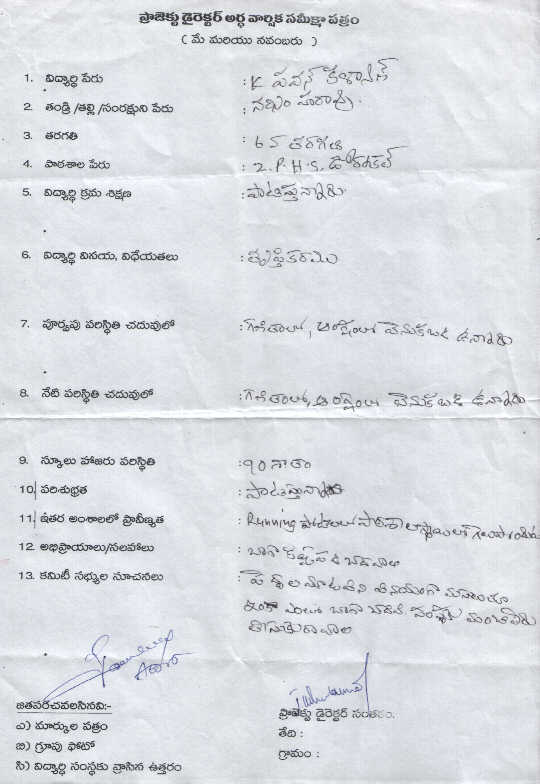 ప్రాజెక్టు డైరెక్టర్ అర్ధ వార్షిక సమీక్షా పత్రం
( మే మరియు నవంబరు )
1. విద్యార్ధి పేరు : K పవన్ కళ్యాణ్
2. తండ్రి /తల్లి /సంరక్షుని పేరు :
3. తరగతి : 6వ తరగతి
4. పాఠశాల పేరు : Z.P.H.S.
5. విద్యార్ధి క్రమ శిక్షణ : పాటిస్తున్నారు
6. విద్యార్ధి వినయ, విధేయతలు : తృప్తికరము
7. పూర్వపు పరిస్థితి చదువులో : గణితంలో, ఆంగ్లంలో వెనుకబడి ఉన్నారు
8. నేటి పరిస్థితి చదువులో : గణితంలో, ఆంగ్లంలో వెనుకబడి ఉన్నారు
9. స్కూలు హాజరు పరిస్థితి : 90 శాతం
10. పరిశుభ్రత : పాటిస్తున్నారు
11. ఇతర అంశాలలో ప్రావీణ్యత : Running పోటీలలో పాఠశాల స్థాయిలో
12. అభిప్రాయాలు/సలహాలు : బాగా కష్టపడి చదవాలి
13. కమిటీ సభ్యుల సూచనలు : పెద్దల వినయంగా
ఇంకా బాగా చదివి సంస్థకు మంచి పేరు
తీసుకురావాలి
జతపరచవలసినవి:-
ప్రాజెక్టు డైరెక్టర్ సంతకం.
ఎ) మార్కుల పత్రం
తేది :
బి) గ్రూపు ఫోటో
గ్రామం :
సి) విద్యార్ధి సంస్థకు వ్రాసిన ఉత్తరం